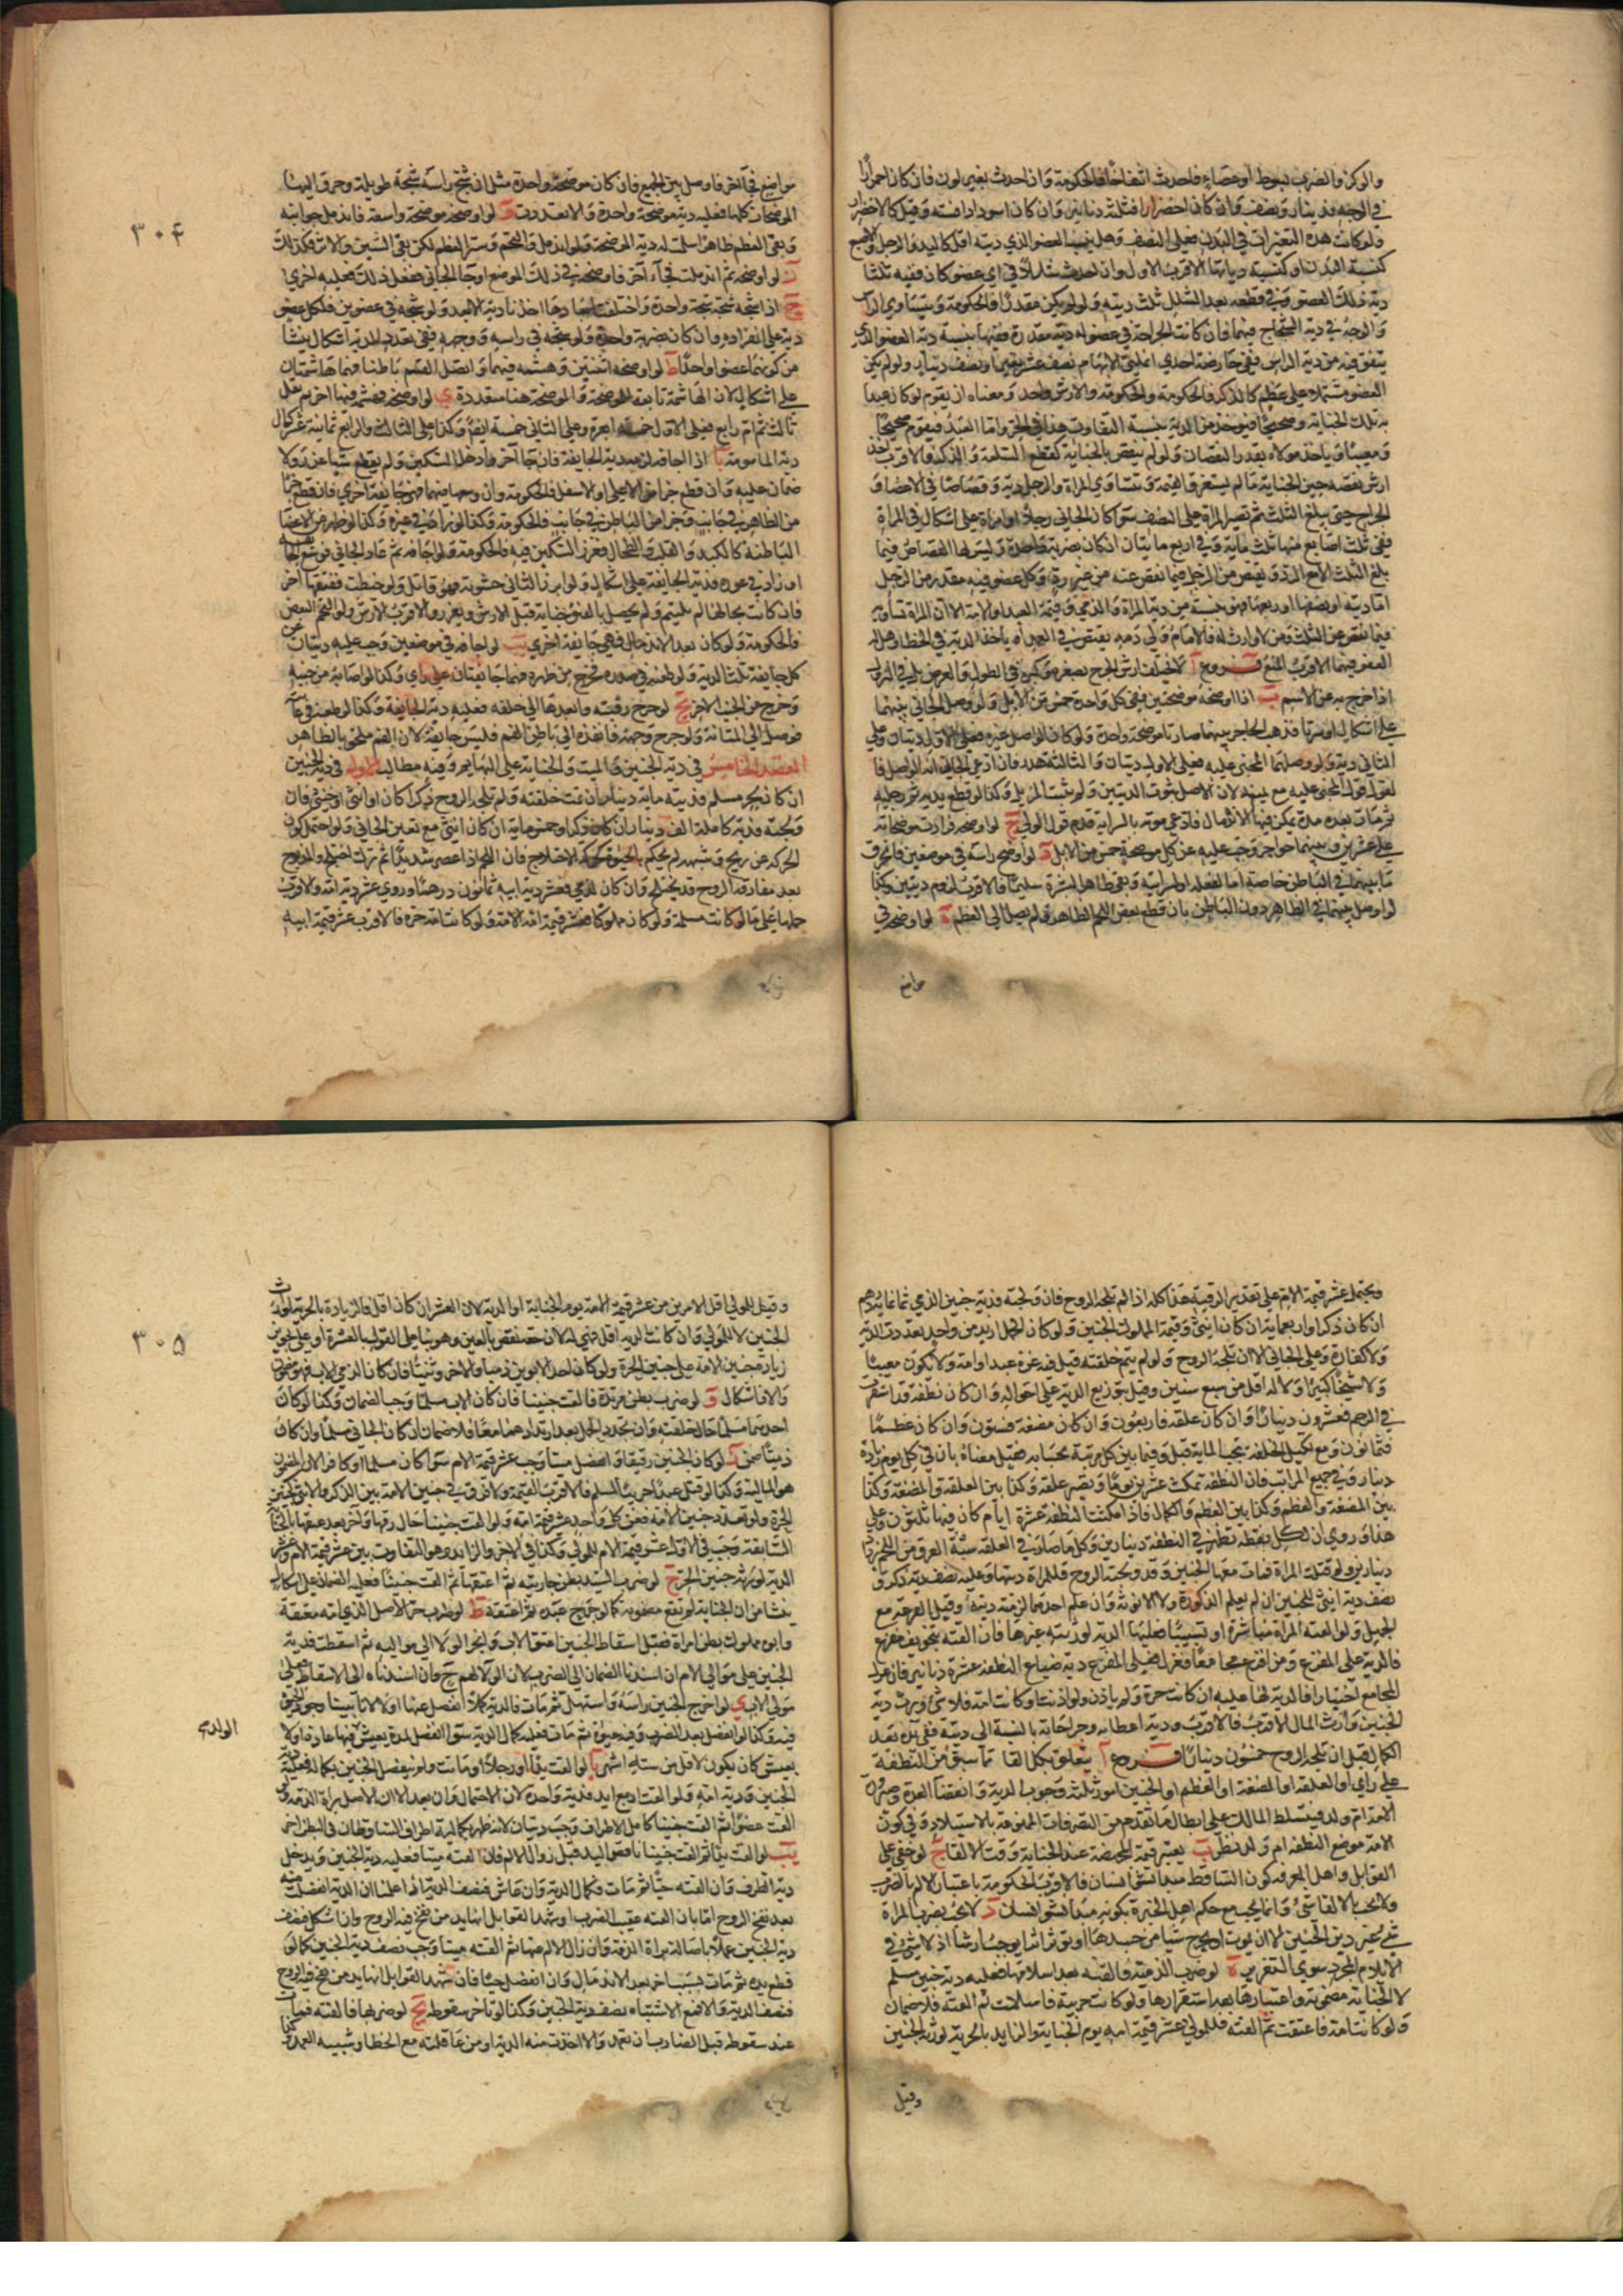 والوكز والضرب بسوط او عصا فاحدث انتفاخا فالحكومة وان احدث تغير لون فان كان احمرارا
في الوجه فدينار ونصف وان كان اخضرارا فثلثة دنانير وان كان اسودادا فستة وقيل كالاخضرار
ولو كانت هذه التغيرات في البدن فعلى النصف وهل ينسب العضو الذي ديته اقل كاليد والرجل والاصبع
كنسبة البدن او كنسبة دياتها الاقرب الاول وان احدث شللا في اي عضو كان ففيه ثلثا
دية ذلك العضو وفي قطعه بعد الشلل ثلث ديته ولو لم يكن مقدرا فالحكومة ويتساوى الراس
والوجه في دية الشجاج فيهما فان كانت الجراحة في عضو له دية مقدرة ففيها بنسبة دية العضو الذي
يتفق فيه من دية الراس ففي حارصة احدى انملتي الابهام نصف عشر بعير او نصف دينار ولو لم يكن
العضو مشتملا على عظم كالذكر فالحكومة والحكومة والارش واحد ومعناه ان يقوم لو كان عبدا
به تلك الجناية وصحيحا فيؤخذ من الدية بنسبة التفاوت هذا في الحر واما العبد فيقوم صحيحا
ومعيبا وياخذ مولاه بقدر النقصان ولو لم ينقص بالجناية كقطع السلعة والذكر فالاقرب اخذ
ارش نقصه حين الجناية ما لم يستغرق القيمة وتتساوى المراة والرجل دية وقصاصا في الاعضاء و
الجراح حتى يبلغ الثلث ثم تصير المراة على النصف سوا كان الجاني رجلا او امراة على اشكال في المراة
ففي ثلث اصابع منها ثلث ماية وفي اربع مايتان ان كان بضربة واحدة وليس لها القصاص فيما
بلغ الثلث الا مع الرد ولا يقتص من الرجل فيما نقص عنه من غير رد وكل عضو فيه مقدر من الرجل
اما ديته او نصفها او ربعها فهو بنسبة من دية المراة والذمي وقيمة العبد او الامة الا ان المراة تساويه
فيما نقص عن الثلث ومن لا وارث له فالامام ولي دمه يقتص في العمد او ياخذ الدية في الخطا وهل له
العفو فيهما الاقرب المنع فروع ا لا يختلف ارش الجرح بصغره وكبره في الطول والعرض بل في النزول
اذا خرج به عن الاسم ب اذا اوضحه موضحتين ففي كل واحدة خمس من الابل ولو وصل الجاني بينهما
على اشكال او سرتا فذهب الحاجز بينهما صارتا موضحة واحدة ولو كان الواصل غيره فعلى الاول ديتان وعلى
الثاني دية ولو وصلهما المجنى عليه فعلى الاول ديتان والثالثة هدر فان ادعى الجاني انه الواصل فا
لقول قول المجنى عليه مع يمينه لان الاصل ثبوت الديتين ولم يثبت المزيل وكذا لو قطع يديه ورجليه
ثم مات بعد مدة يمكن فيها الاندمال فادعى موته بالسراية قدم قول الولي ج لو اوضحه فزادت موضحاته
على عشرين وبينهما حواجز وجب عليه عن كل موضحة خمس من الابل د لو اوضح راسه في موضعين فانخرق
ما بينهما في الباطن خاصة اما لفعله او لسرايته وبقي ظاهر البشرة سليما فالاقرب لزوم ديتين وكذا
لو اوصل بينهما في الظاهر دون الباطن بان قطع بعض اللحم الظاهر ولم يصل الى العظم ه لو اوضحه في
مواضع
٣٠۴
مواضع في آخر فاوصل بين الجميع فان كان موضحة واحدة مثل ان شج راسه شجة طويلة وحرق اليها
الموضحات كلها فعليه دية موضحة واحدة والا تعددت و لو اوضحه موضحة واسعة فاندمل جوانبه
وبقى العظم ظاهرا سلمت له دية الموضحة ولو اندمل والتحم وستر العظم لكن بقى الشين والاثر فكذلك
ز لو اوضحه ثم اندملت فجآء آخر فاوضحه في ذلك الموضع او جا الجاني ففعل ذلك فعليه اخرى
ح اذا شجه شجة واحدة واختلفت ابعادها اخذنا دية الابعد ولو شجه في عضوين فلكل عضو
دية على انفراده وان كان بضربة واحدة ولو شجه في راسه ووجهه ففي تعدد الدية اشكال ينشا
من كونهما عضوا واحدا ط لو اوضحه اثنتين وهشمه فيهما واتصل الهشم باطنا فهما هاشمتان
على اشكال لان الهاشمة تابعة للموضحة والموضحة هنا متعددة ي لو اوضحه فهشمه فيها آخر ثم نقل
ثالث ثم ام رابع فعلى الاول خمسة ابعرة وعلى الثاني خمسة ايضا وكذا على الثالث والرابع ثمانية عشر كمال
دية المامومة يا اذا اجافه لزمه دية الجايفة فان جا آخر وادخل السكين ولم يقطع شيا عزر ولا
ضمان عليه وان قطع جزا من الاعلى او الاسفل فالحكومة وان وسعها فيهما فهو جايفة اخرى فان قطع جزا
من الظاهر في جانب وجزا من الباطن في جانب فالحكومة وكذا لو زاد في غوره وكذا لو ظهر من الاعضا
الباطنة كالكبد والقلب والطحال فغرز السكين فيه فالحكومة ولو اجافه ثم عاد الجاني فوسع الجايفة
او زاد في غوره فدية الجايفة على اشكال ولو ابرز الثاني حشوته فهو قاتل ولو خيطت ففتقها آخر
فان كانت بحالها لم يلتيم ولم يحصل بالفتق جناية قيل لا ارش ويعزر والاقرب الارش ولو التحم البعض
فالحكومة ولو كان بعد الاندمال فهي جايفة اخرى يب لو اجافه في موضعين وجب عليه ديتان عن
كل جايفة ثلث الدية ولو طعنه في صدره فخرج من ظهره فهما جايفتان على راي وكذا لو اصابه من جنبه
وخرج من الجنب الاخر يج لو جرح رقبته وانفدها الى حلقه فعليه دية الجايفة وكذا لو طعنه في عانته
فوصل الى المثانة ولو جرح وجهه فانفذه الى باطن الفم فليس جايفة لان الفم ملحق بالظاهر
المقصد الخامس في دية الجنين والميت والجناية على البهايم وفيه مطالب الاول في دية الجنين
ان كان بحر مسلم فديته ماية دينار ان تمت خلقته ولم تلجه الروح ذكرا كان او انثى او خنثى فان
ولجته فدية كاملة الف دينار ان كان ذكرا وخمسماية ان كان انثى مع تعين الجاني ولو احتمل كون
الحركة عن ريح وشبهه لم يحكم بالحيوة كحركة الاختلاج فان اللحم اذا عصر شديدا ثم ترك اختلج والمذبوح
بعد مفارقة الروح قد يختلج وان كان لذمي فعشر دية ابيه ثمانون درهما وروي عشر دية امه والاقرب
حملها على ما لو كانت مسلمة ولو كان مملوكا فعشر قيمة امه الامة ولو كانت امه حرة فالاقرب عشر قيمة ابيه
ويحتمل عشر قيمة الام على تقدير الرقية هذا كله اذا لم تلجه الروح فان ولجته فدية جنين الذمي ثمانماية درهم
ان كان ذكرا واربعماية ان كان انثى وقيمة المملوك الجنين ولو كان الحمل ازيد من واحد تعددت الدية
ولا كفارة على الجاني الا ان تلجه الروح ولو لم يتم خلقته قيل فيه غرة عبدا او امة ولا يكون معيبا
ولا شيخا كبيرا ولا له اقل من سبع سنين وقيل بتوزيع الدية على احواله وان كان نطفة قد استقرت
في الرحم فعشرون دينارا وان كان علقة فاربعون وان كان مضغة فستون وان كان عظما
فثمانون ومع تكميل الخلقة يجب الماية قيل وفيما بين كل مرتبة بحسابه فقيل معناه بان في كل يوم زيادة
دينار في جميع المراتب فان النطفة تمكث عشرين يوما وتصير علقة وكذا بين العلقة والمضغة وكذا
بين المضغة والعظم وكذا بين العظم والكمال فاذا مكثت النطفة عشرة ايام كان فيها ثلثون وعلى
هذا وروي ان لكل نقطة تظهر في النطفة دينارين وكل ما صار في العلقة شبه العرق من اللحم زاد
دينارين ولو قتلت المراة فمات معها الجنين وقد ولجته الروح فللمراة ديتها وعليه نصف دية ذكر و
نصف دية انثى للجنين ان لم يعلم الذكورة ولا الانوثة وان علم احدهما لزمته ديته وقيل القرعة مع
الجهل ولو القته المراة مباشرة او تسبيبا فعليها الدية لورثته غيرها فان القته بتخويف مفزع
فالدية على المفزع ومن افزع مجامعا فعزل فعلى المفزع دية ضياع النطفة عشرة دنانير فان عزل
المجامع اختيارا فالدية لها عليه ان كانت حرة ولم ياذن ولو اذنت او كانت امة فلا شئ ويرث دية
الجنين وارث المال الاقرب فالاقرب ودية اعضايه وجراحاته بالنسبة الى ديته ففي يده بعد
الكمال قبل ان تلجه الروح خمسون دينارا فروع ا يتعلق بكل القا مما سبق من النطفة
على راي او العلقة او المضغة او العظم او الجنين امور ثلثة وجوب الدية وانقضا العدة وصيرورة
الامة ام ولد فيتسلط المالك على ابطال ما تقدم من التصرفات الممنوعة بالاستيلاد وفي كون
الامة موضع النطفة ام ولد نظر ب يعتبر قيمة المجهضة عند الجناية لا وقت الالقا ج لو خفى على
القوابل واهل المعرفة كون الساقط مبدا نشو انسان فالاقرب الحكومة باعتبار الالم بالضرب
ولا يجب بالالقا شئ وانما يجب مع حكم اهل الخبرة بكونه مبدا نشو انسان د لا يجب بضرب المراة
شئ غير دية الجنين الا ان يموت او يجرح شيا من جسدها او يؤثر اثرا يوجب ارشا اذ لا شئ في
الايلام المجرد سوى التعزير ه لو ضرب الذمية فالقته بعد اسلامها فعليه دية جنين مسلم
لان الجناية مضمونة واعتبارها بعد استقرارها ولو كانت حربية فاسلمت ثم القته فلا ضمان
ولو كانت امة فاعتقت ثم القته فللمولى عشر قيمة امه يوم الجناية والزايد بالحرية لورثة الجنين
وقيل
٣٠۵
وقيل للمولى اقل الامرين من عشر قيمة الامة يوم الجناية او الدية لان العشر ان كان اقل فالزيادة بالحرية لورثة
الجنين لا للمولى وان كانت الدية اقل فهي له لان حقه نقص بالعتق وهو بنا على القول بالغرة او على تجويز
زيادة جنين الامة على جنين الحرة ولو كان احد الابوين ذميا والاخر وثنيا فان كان الذمي الاب فهو ذمي
والا فاشكال و لو ضرب بطن مرتدة فالقت جنينا فان كان الاب مسلما وجب الضمان وكذا لو كان
احدهما مسلما حال خلقته وان تجدد الحمل بعد ارتدادهما معا فلا ضمان ان كان الجاني مسلما وان كان
ذميا ضمن ز لو كان الجنين رقيقا وانفصل ميتا وجب عشر قيمة الام سوا كان مسلما او كافرا لان المضمون
هو المالية وكذا لو قتل عبدا حربيا لمسلم فالاقرب القيمة ولا فرق في جنين الامة بين الذكر والانثى كجنين
الحرة ولو تعدد جنين الامة ففي كل واحد عشر قيمة امه ولو القت جنينا حال رقها وآخر بعد عتقها بالجناية
السابقة وجب في الاول عشر قيمة الام للمولى وكذا في الاخر والزايد وهو التفاوت بين عشر قيمة الام وعشر
الدية لورثة جنين الحر ح لو ضرب السيد بطن جاريته ثم اعتقها ثم القت جنينا فعليه الضمان على اشكال
ينشا من ان الجناية لم تقع مضمونة كما لو جرح عبده ثم اعتقه ط لو ضرب حر الاصل الذي امه معتقة
وابوه مملوك بطن امراة فقبل اسقاط الجنين اعتق الاب وانجر الولا الى مواليه ثم اسقطت فدية
الجنين على موالي الام ان اسندنا الضمان الى الضرب لان الولا لهم ح وان اسندناه الى الاسقاط فعلى
مولى الاب ي لو اخرج الجنين راسه واستهل ثم مات فالدية كملا انفصل عنها او لا لانا تبينا وجود الجنين
فيه وكذا لو انفصل بعد الضرب وفيه حيوة ثم مات فعليه كمال الدية سوا انفصل لمدة يعيش فيها عادة او لا
يعيش كان يكون لاقل من ستة اشهر يا لو القت يدا او رجلا او ماتت ولم ينفصل الجنين بكماله فعليه دية
الجنين ودية امه ولو القت اربع ايد فدية واحدة لان الاحتمال وان بعد الا ان الاصل براة الذمة ولو
القت عضوا ثم القت جنينا كامل الاطراف وجب ديتان
يب لو القت يدا ثم القت جنينا ناقص اليد قبل زوال الالم فان القته ميتا فعليه دية الجنين ويدخل
دية الطرف وان القته حيا ثم مات فكمال الدية وان عاش فنصف الدية اذا علمنا ان اليد انفصلت منه
بعد نفخ الروح اما بان القته عقيب الضرب او شهد القوابل انها يد من نفخ فيه الروح وان اشكل فنصف
دية الجنين عملا باصالة براة الذمة وان زال الالم عنها ثم القته ميتا وجب نصف دية الجنين كما لو
قطع يده ثم مات بسبب آخر بعد الاندمال وان انفصل حيا فان شهد القوابل انها يد من نفخ فيه الروح
فنصف الدية والا فمع الاشتباه نصف دية الجنين وكذا لو تاخر سقوطه يج لو ضربها فالقته فمات
عند سقوطه قتل الضارب ان تعمد والا اخذت منه الدية او من عاقلته مع الخطا وشبيه العمد وكذا
الولادة